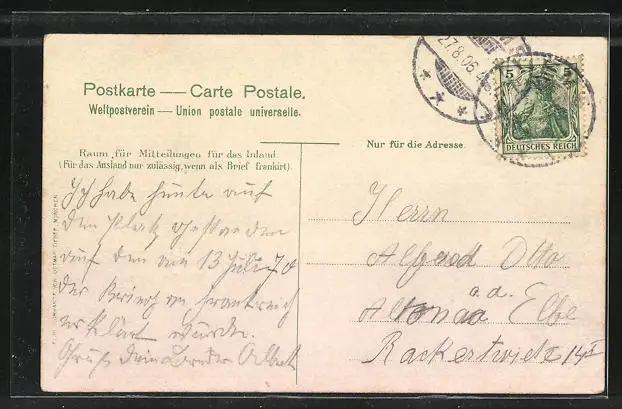 27.8.06
Postkarte — Carte Postale.
Weltpostverein — Union postale universelle.
5 5
DEUTSCHES REICH
Nur für die Adresse
Raum für Mitteilungen für das Inland.
(Für das Ausland nur zulässig, wenn als Brief frankirt).
Ich habe heute auf
den Platz gestanden
auf den am 13 Juli 70
der Krieg an Frankreich
erklärt wurde.
Gruß Dein Bruder
Herrn
Otto
Altona a.d. Elbe
14 I